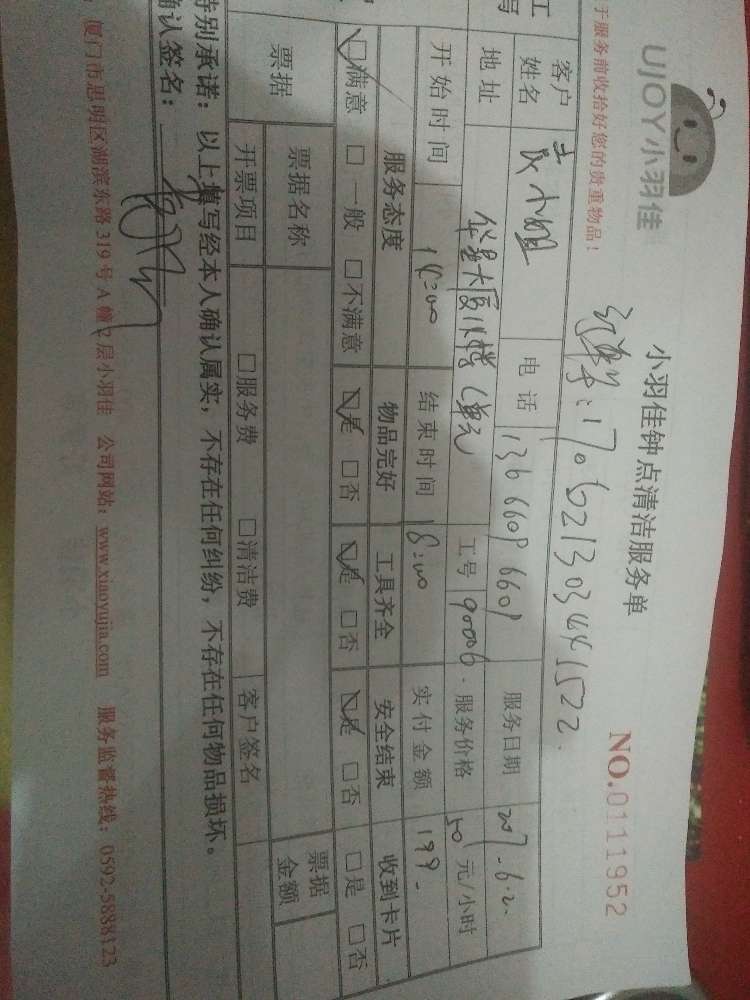 UJOY小羽佳
小羽佳钟点清洁服务单
NO.0111952
于服务前收拾好您的贵重物品！
170621303441522
客户姓名 小姐 电话 13666096609 服务日期 2017.6.2
地址 华星大厦 单元 工号 90006 服务价格 50元/小时
开始时间 14:00 结束时间 18:00 实付金额 199
服务态度 物品完好 工具齐全 安全结束 收到卡片
☑满意 □一般 □不满意 ☑是 □否 ☑是 □否 ☑是 □否 □是 □否
票据 票据名称 票据金额
开票项目 □服务费 □清洁费 客户签名
特别承诺：以上填写经本人确认属实，不存在任何纠纷，不存在任何物品损坏。
确认签名：
厦门市思明区湖滨东路319号A幢2层小羽佳 公司网站：www.xiaoyujia.com 服务监督热线：0592-5888123